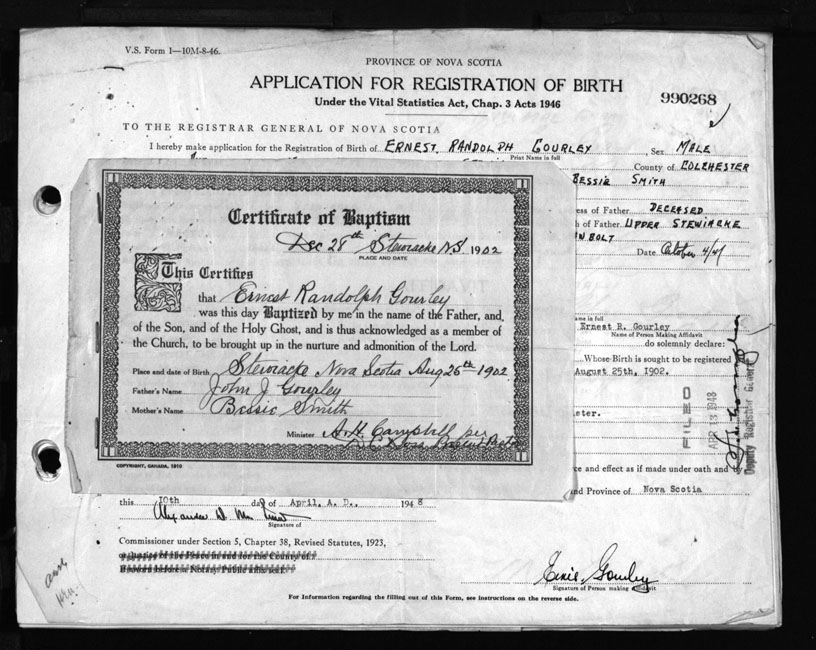 V.S. Form 1—10M-8-46.
PROVINCE OF NOVA SCOTIA
APPLICATION FOR REGISTRATION OF BIRTH
Under the Vital Statistics Act, Chap. 3 Acts 1946
990268
TO THE REGISTRAR GENERAL OF NOVA SCOTIA
I hereby make application for the Registration of Birth of ERNEST RANDOLPH GOURLEY, Sex MALE
Print Name in full
County of COLCHESTER
BESSIE SMITH
ess of Father DECEASED
h of Father UPPER STEWIACKE
N BOLT
Date October 4/47
Certificate of Baptism
Dec 28th Stewiacke N.S. 1902
PLACE AND DATE
This Certifies
that Ernest Randolph Gourley
was this day Baptized by me in the name of the Father, and
of the Son, and of the Holy Ghost, and is thus acknowledged as a member of
the Church, to be brought up in the nurture and admonition of the Lord.
Place and date of Birth Stewiacke Nova Scotia Aug 26th 1902
Father's Name John J Gourley
Mother's Name Bessie Smith
Minister A.H. Campbell per
COPYRIGHT, CANADA, 1910
me in full
Ernest R. Gourley
Name of Person Making Affidavit
do solemnly declare:
Whose Birth is sought to be registered
August 25th, 1902.
ster.
FILED
APR 13 1948
Deputy Registrar General
ce and effect as if made under oath and by
nd Province of Nova Scotia
this 10th day of April, A. D., 1948
Signature of
Commissioner under Section 5, Chapter 38, Revised Statutes, 1923,
Ernie Gourley
Signature of Person making Affidavit
For Information regarding the filling out of this Form, see instructions on the reverse side.